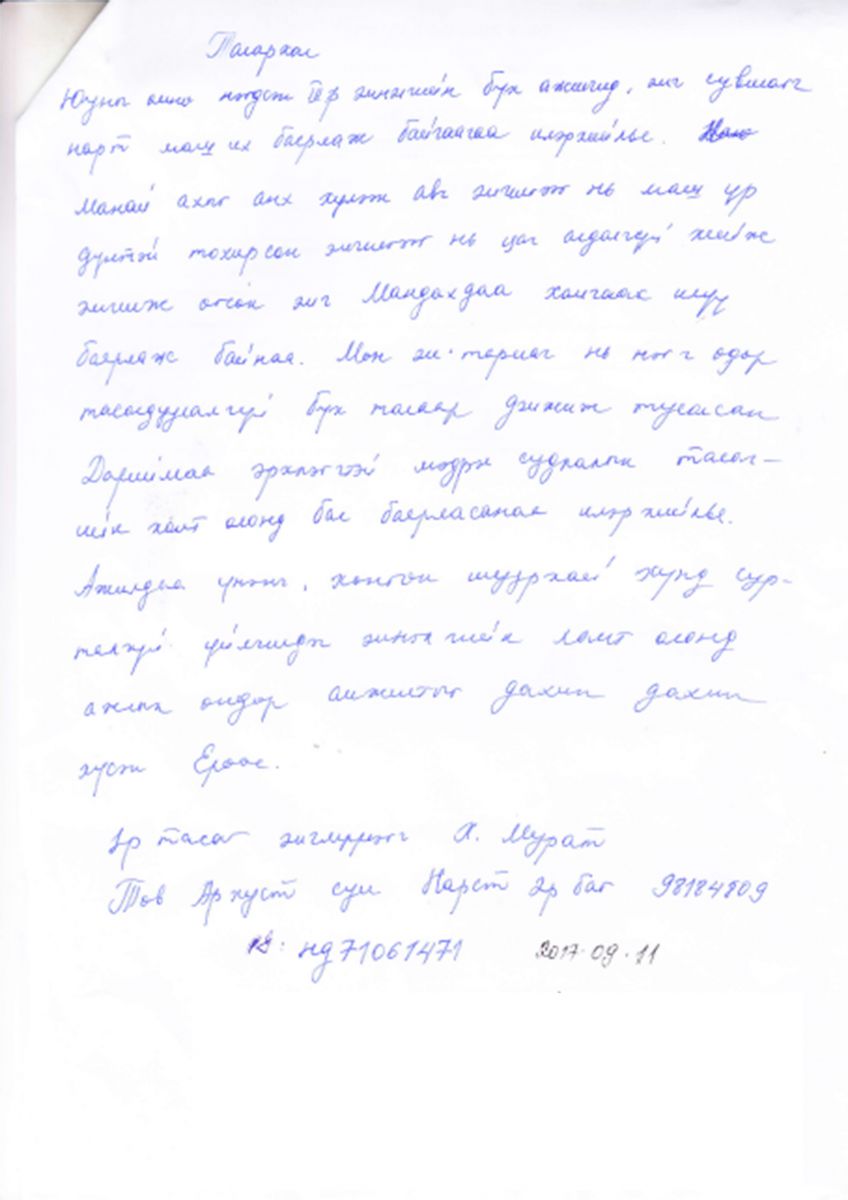 Талархал
Юуны өмнө нэгдсэн IIIр эмнэлгийн бүх ажилчид, эмч сувилагч
нарт маш их баярлаж байгаагаа илэрхийлье.
Манай ахыг анх хүлэж авч эмчилгээ нь маш үр
дүнтэй тохирсон эмчилгээ нь цаг алдалгүй хийж
эмчилж өгсөн эмч Мандахдаа хамгаас илүү
баярлаж байнаа. Мөн эм тариаг нь нэг ч өдөр
тасалдуулалгүй бүх талаар дэмжиж тусалсан
Даариймаа эрхлэгчтэй мэдрэл судлалын тасаг-
ийн хамт олонд бас баярласанаа илэрхийлье.
Ажилдаа үнэнч, хөнгөн шуурхай хүнд сур-
талгүй үйлчилдэг эмнэлгийн хамт олонд
ажлын өндөр амжилтыг дахин дахин
хүсэн Ерөөе.
тасаг эмчлүүлэгч Х. Мурат
Төв Архуст сум Нарст 2р баг 98184809
РД: нд71061471 2017.09.11